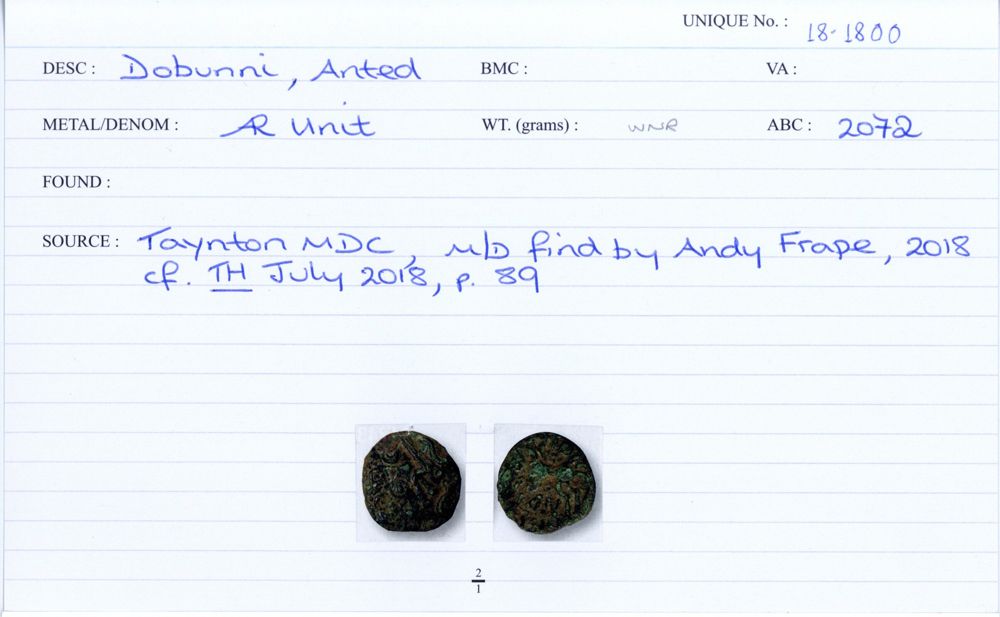 UNIQUE No. : 18-1800
DESC : Dobunni, Anted BMC : VA :
METAL/DENOM : AR Unit WT. (grams) : WNR ABC : 2072
FOUND :
SOURCE : Taynton MDC, M/D find by Andy Frape, 2018
cf. TH July 2018, p. 89
2
1